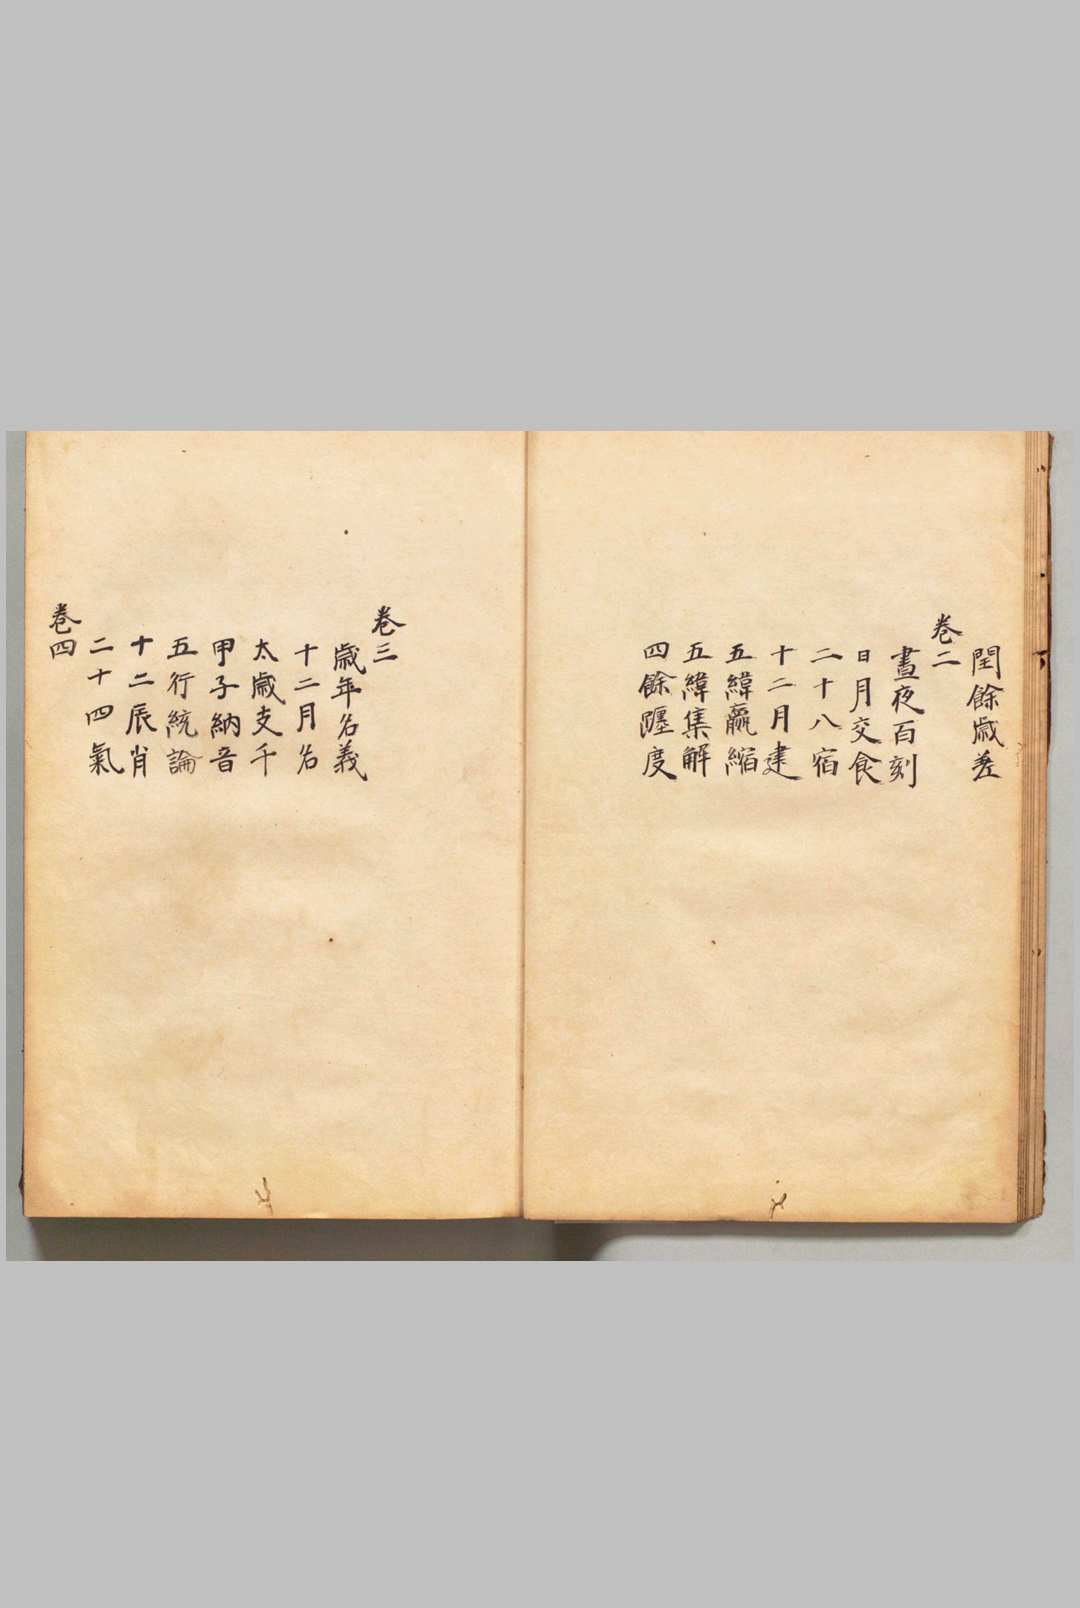 閏餘歲差
卷二
晝夜百刻
日月交食
二十八宿
十二月建
五緯贏縮
五緯集解
四餘躔度
卷三
歲年名義
十二月名
太歲支干
甲子納音
五行統論
十二辰肖
二十四氣
卷四